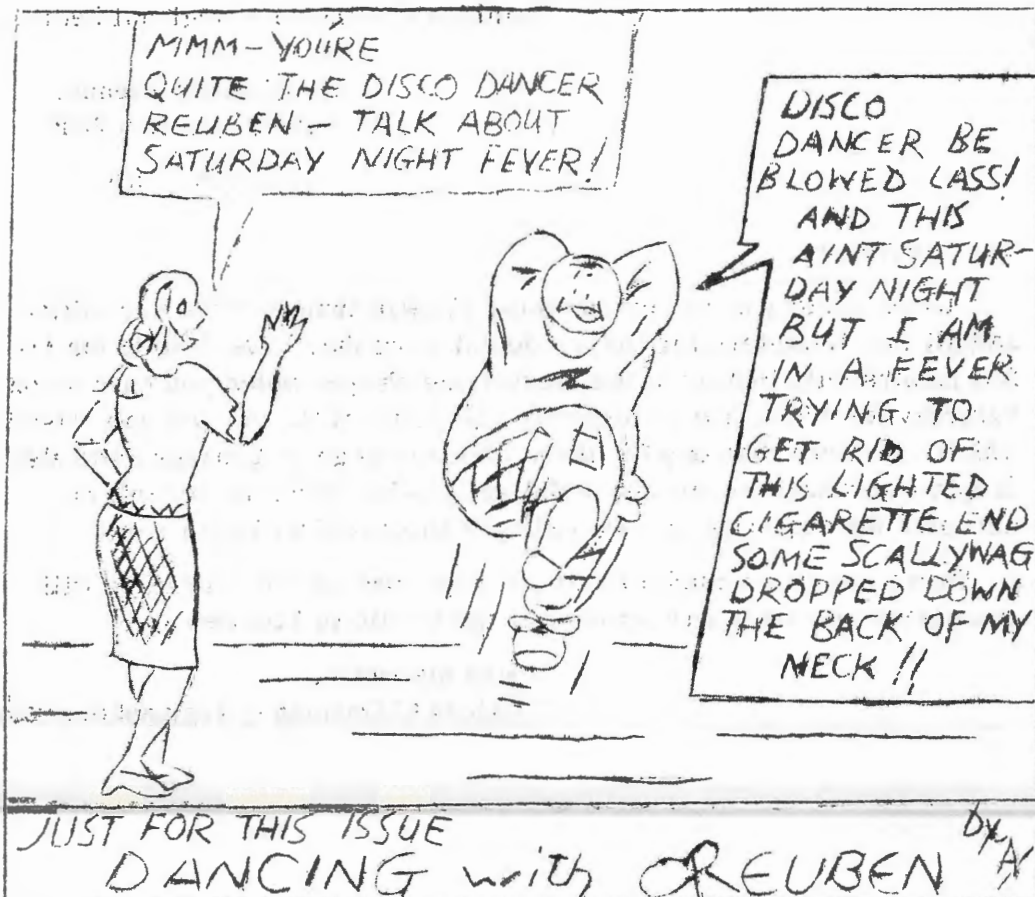 MMM - YOU'RE
QUITE THE DISCO DANCER
REUBEN - TALK ABOUT
SATURDAY NIGHT FEVER!
DISCO
DANCER BE
BLOWED LASS!
AND THIS
AYNT SATUR-
DAY NIGHT
BUT I AM
IN A FEVER
TRYING TO
GET RID OF
THIS LIGHTED
CIGARETTE END
SOME SCALLYWAG
DROPPED DOWN
THE BACK OF MY
NECK!!
JUST FOR THIS ISSUE
DANCING with REUBEN